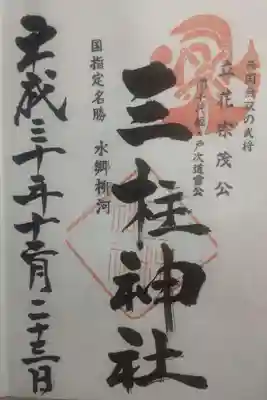 西国無双の武将
立花宗茂公
戸次道雪公
三柱神社
国指定名勝 水郷柳河
平成三十年十二月二十三日